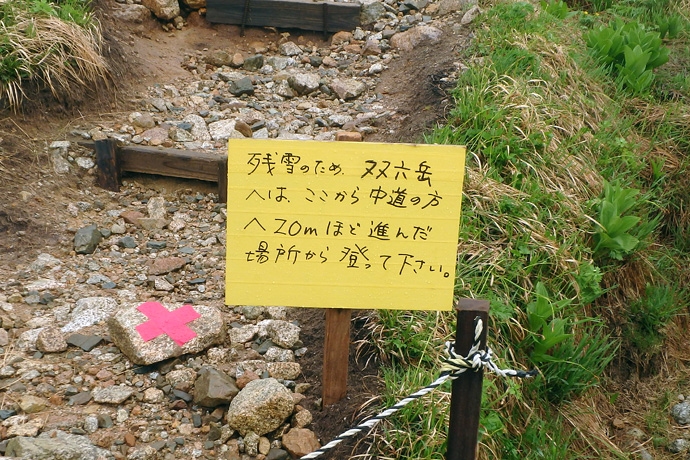 残雪のため、双六岳
へは、ここから中道の方
へ20mほど進んだ
場所から登って下さい。